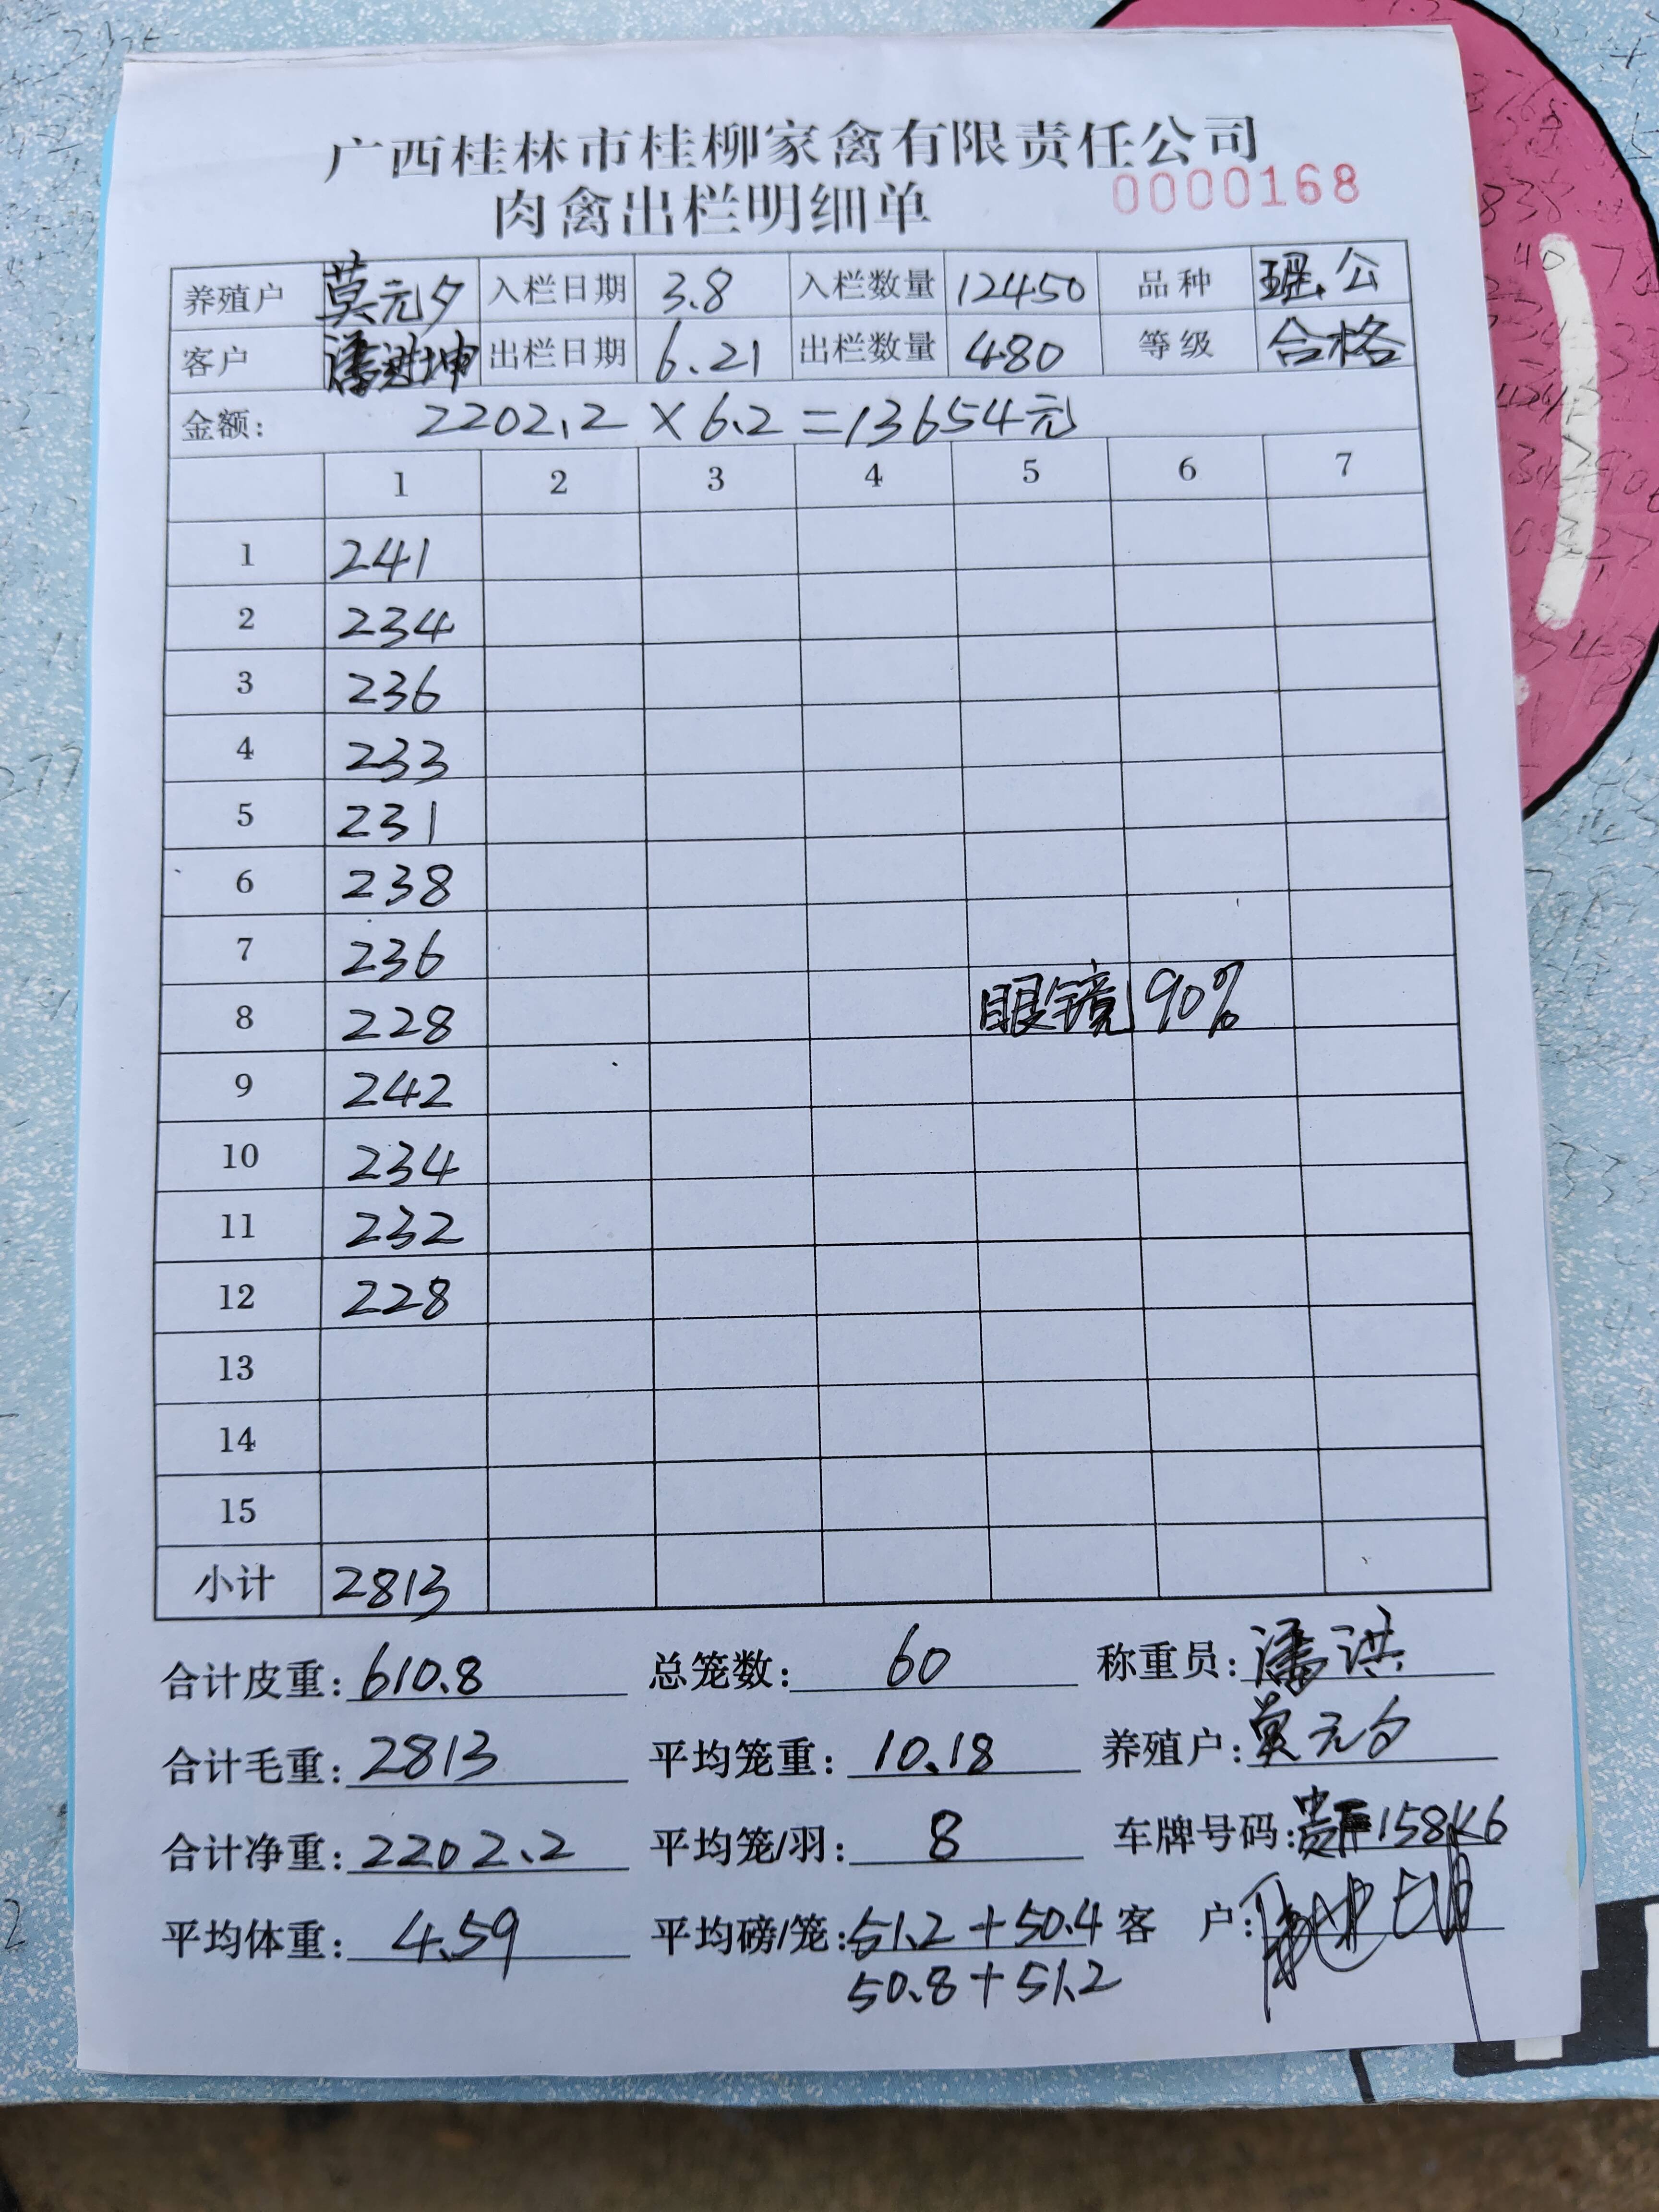 广西桂林市桂柳家禽有限责任公司
肉禽出栏明细单
0000168
养殖户 莫元夕 入栏日期 3.8 入栏数量 12450 品种 瑶公
客户 潘进坤 出栏日期 6.21 出栏数量 480 等级 合格
金额: 2202.2 × 6.2 = 13654元
1 2 3 4 5 6 7
1 241
2 234
3 236
4 233
5 231
6 238
7 236
8 228 眼镜 90%
9 242
10 234
11 232
12 228
13
14
15
小计 2813
合计皮重: 610.8 总笼数: 60 称重员: 潘洪
合计毛重: 2813 平均笼重: 10.18 养殖户: 莫元夕
合计净重: 2202.2 平均笼/羽: 8 车牌号码: 贵 158K6
平均体重: 4.59 平均磅/笼: 51.2 + 50.4 客 户:
50.8 + 51.2